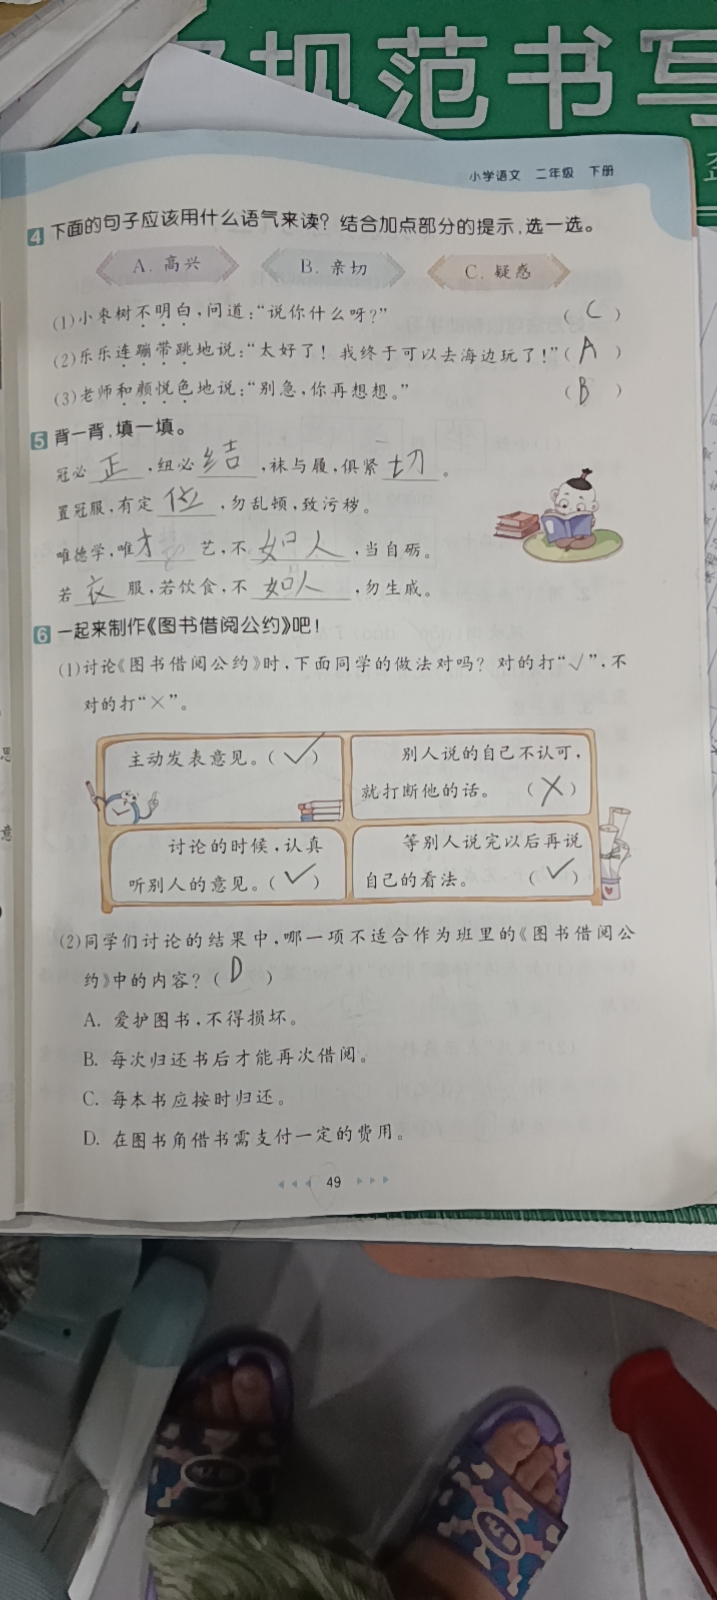 规范书写
小学语文 二年级 下册
4 下面的句子应该用什么语气来读？结合加点部分的提示，选一选。
A. 高兴 B. 亲切 C. 疑惑
(1)小枣树不明白，问道：“说你什么呀？” （ C ）
(2)乐乐连蹦带跳地说：“太好了！我终于可以去海边玩了！”（ A ）
(3)老师和颜悦色地说：“别急，你再想想。” （ B ）
5 背一背，填一填。
冠必 正 ，纽必 结 ，袜与履，俱紧 切 。
置冠服，有定 位 ，勿乱顿，致污秽。
唯德学，唯 才 艺，不 如人 ，当自砺。
若 衣 服，若饮食，不 如人 ，勿生戚。
6 一起来制作《图书借阅公约》吧！
(1)讨论《图书借阅公约》时，下面同学的做法对吗？对的打“√”，不
对的打“×”。
主动发表意见。（ √ ）
别人说的自己不认可，
就打断他的话。 （ × ）
讨论的时候，认真
听别人的意见。（ √ ）
等别人说完以后再说
自己的看法。 （ √ ）
(2)同学们讨论的结果中，哪一项不适合作为班里的《图书借阅公
约》中的内容？（ D ）
A. 爱护图书，不得损坏。
B. 每次归还书后才能再次借阅。
C. 每本书应按时归还。
D. 在图书角借书需支付一定的费用。
49